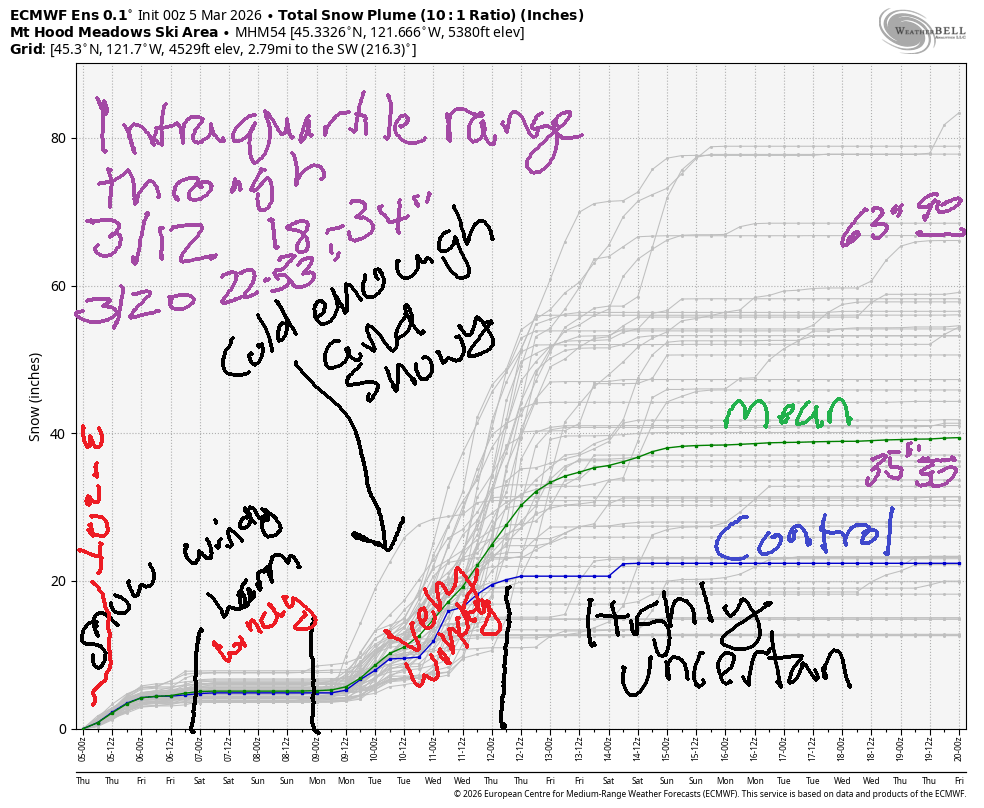 ECMWF Ens 0.1° Init 00z 5 Mar 2026 • Total Snow Plume (10:1 Ratio) (Inches)
Mt Hood Meadows Ski Area • MHM54 [45.3326°N, 121.666°W, 5380ft elev]
Grid: [45.3°N, 121.7°W, 4529ft elev, 2.79mi to the SW (216.3)°]
WEATHERBELL
Intraquartile range
through
3/12 18"-34"
3/20 22-53"
Cold enough
and
snowy
63" 90
mean
35" 50
Control
Snow
windy
warm
windy
very
windy
Highly
Uncertain
Snow (inches)
80
60
40
20
0
05-00z 05-12z 06-00z 06-12z 07-00z 07-12z 08-00z 08-12z 09-00z 09-12z 10-00z 10-12z 11-00z 11-12z 12-00z 12-12z 13-00z 13-12z 14-00z 14-12z 15-00z 15-12z 16-00z 16-12z 17-00z 17-12z 18-00z 18-12z 19-00z 19-12z 20-00z
Thu Thu Fri Fri Sat Sat Sun Sun Mon Mon Tue Tue Wed Wed Thu Thu Fri Fri Sat Sat Sun Sun Mon Mon Tue Tue Wed Wed Thu Thu Fri
© 2026 European Centre for Medium-Range Weather Forecasts (ECMWF). This service is based on data and products of the ECMWF.